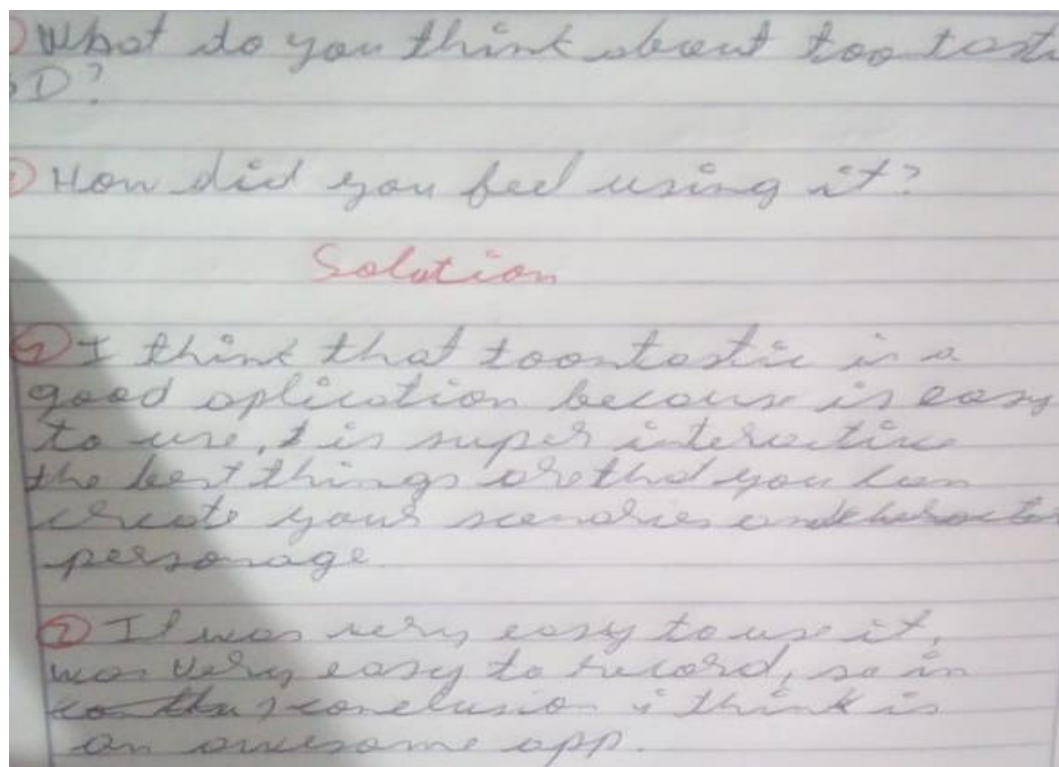 What do you think about too tasti
D?
How did you feel using it?
Solution
1 I think that toontastic is a
good aplication because is easy
to use, t is super interactive
the best things are thd you can
create your scenaries and
personage.
2 It was very easy to use it,
was very easy to record, so in
conclusion i think is
an awesome app.